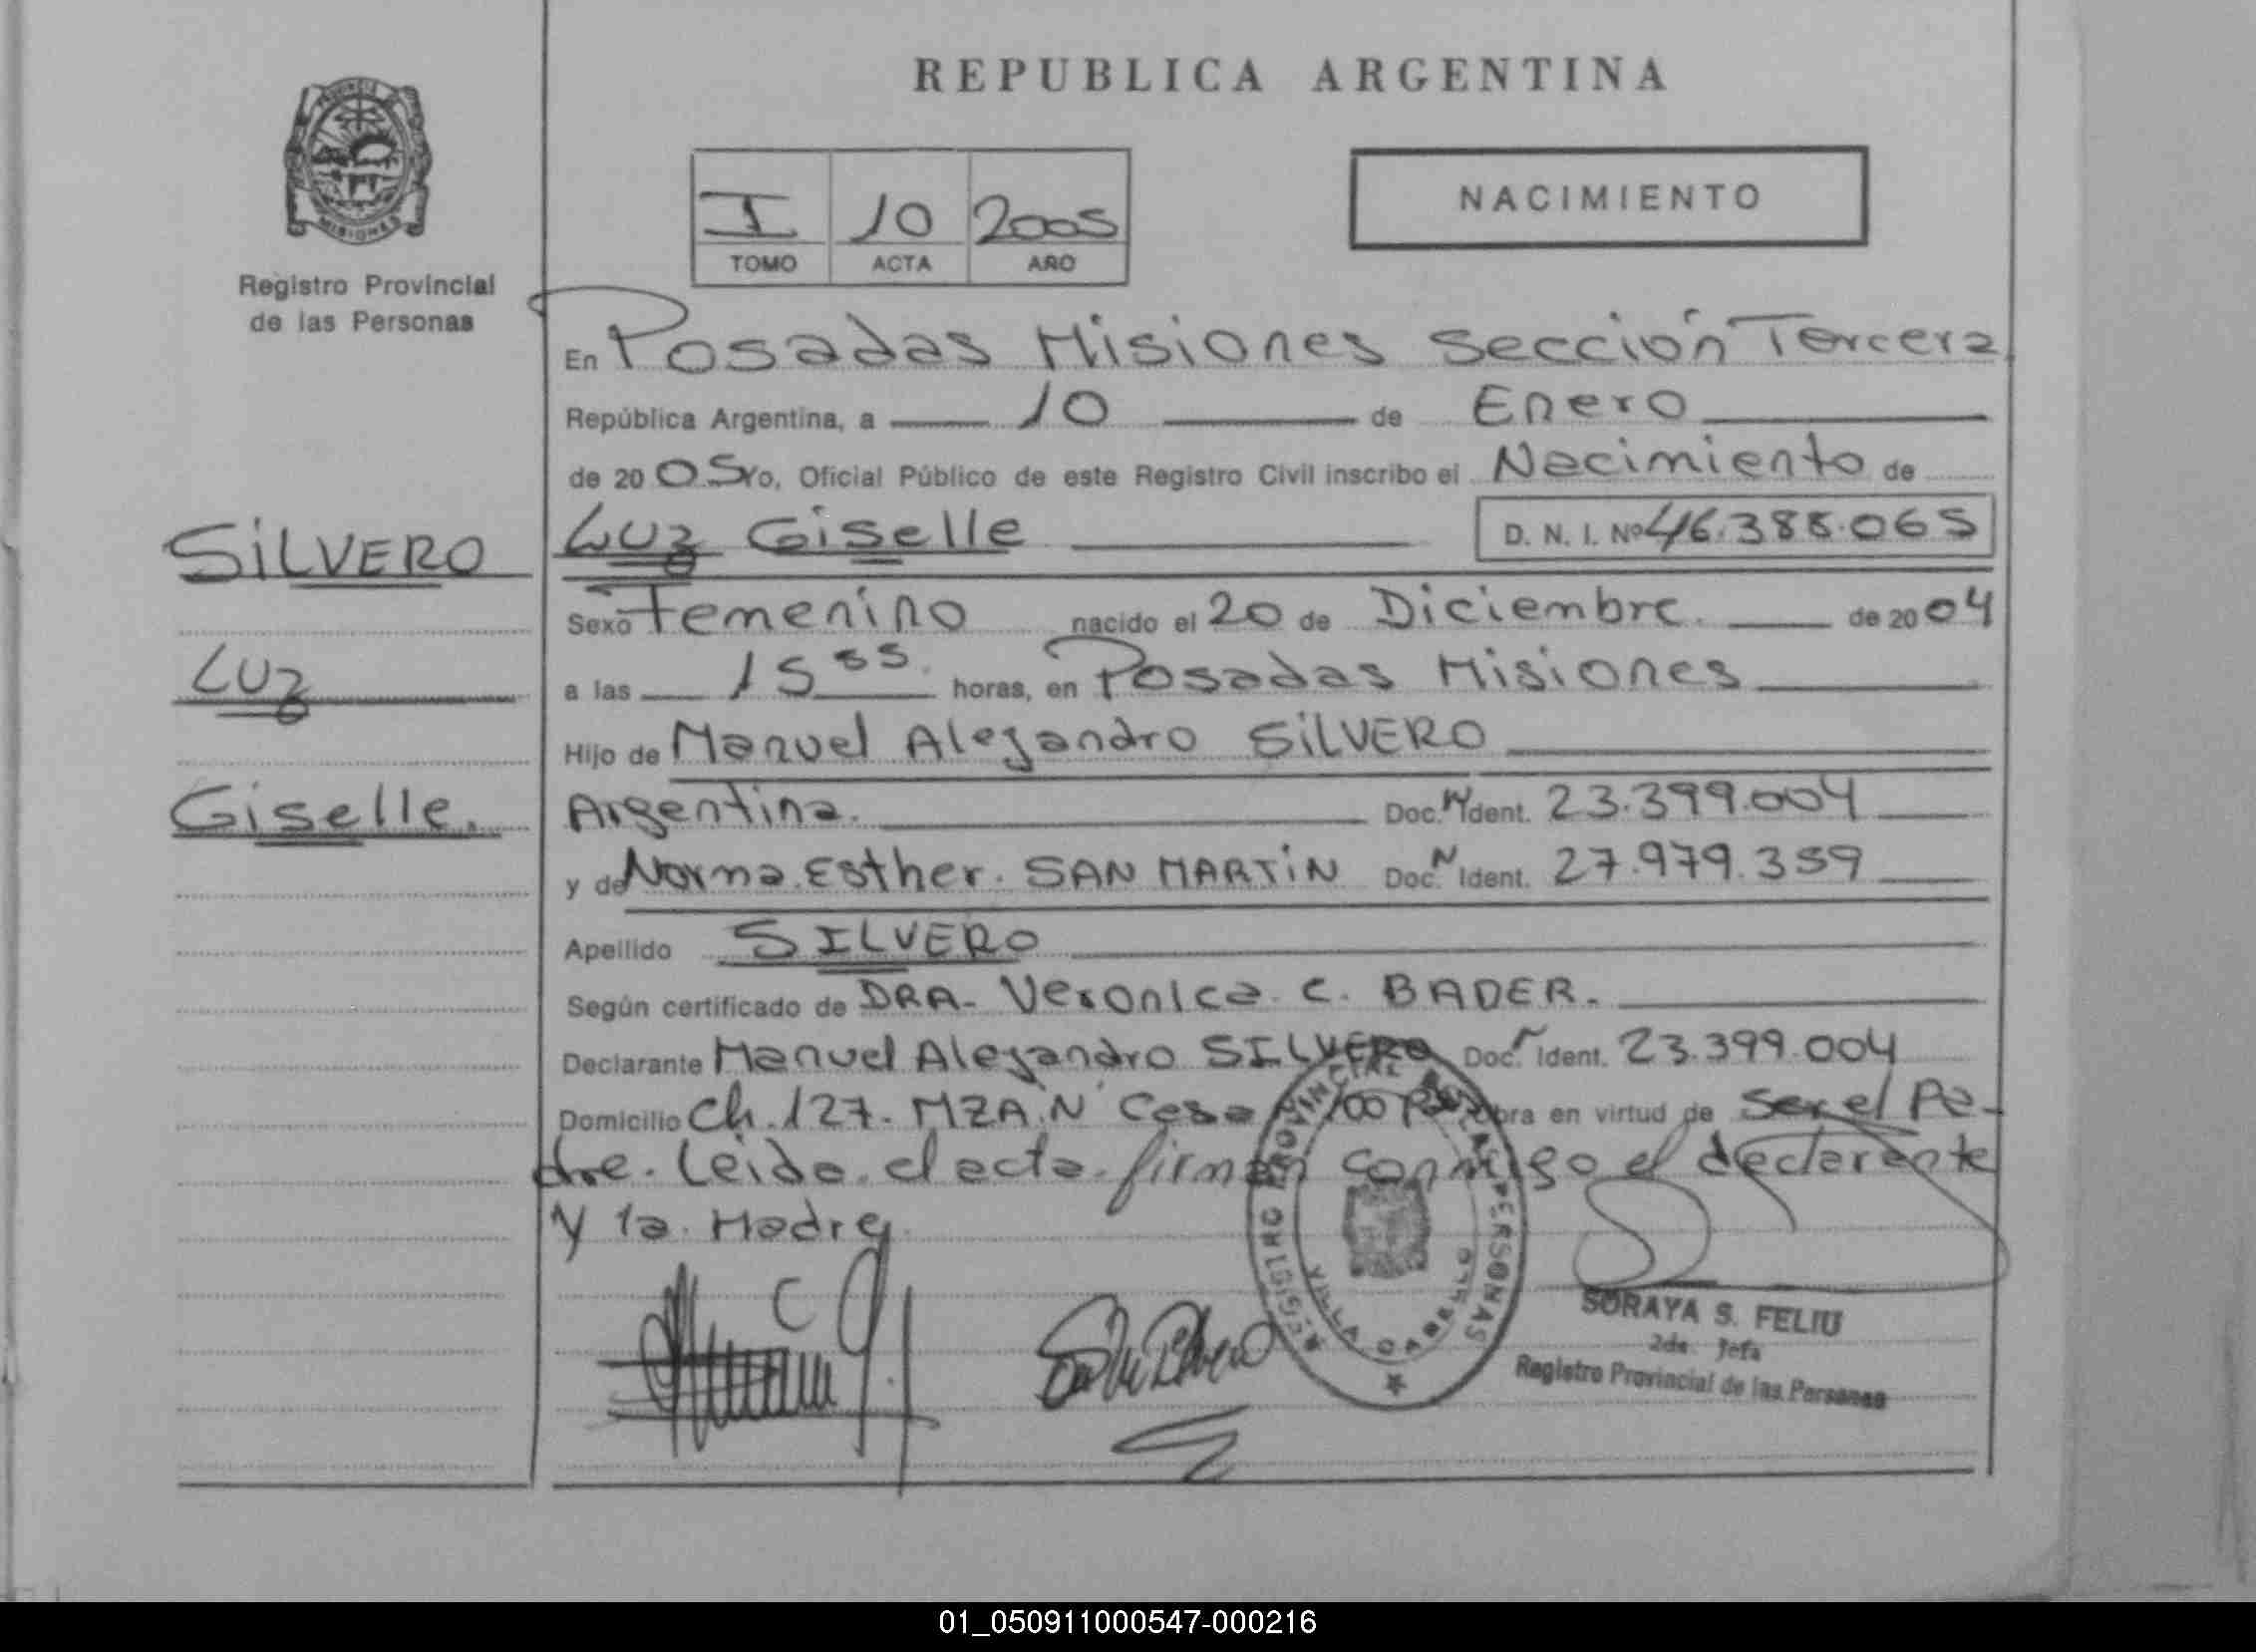 REPUBLICA ARGENTINA
PROVINCIA DE
MISIONES
Registro Provincial
de las Personas
I 10 2005
TOMO ACTA AÑO
NACIMIENTO
En Posadas Misiones sección Tercera
República Argentina, a 10 de Enero
de 2005 yo, Oficial Público de este Registro Civil inscribo el Nacimiento de
SILVERO
Luz Giselle D. N. I. Nº 46.388.065
Sexo Femenino nacido el 20 de Diciembre. de 2004
Luz
a las 15 55 horas, en Posadas Misiones
Hijo de Manuel Alejandro SILVERO
Giselle.
Argentina. Doc. N Ident. 23.399.004
y de Norma Esther. SAN MARTIN Doc. N Ident. 27.979.359
Apellido SILVERO
Según certificado de DRA- Veronica C. BADER.
Declarante Manuel Alejandro SILVERO Doc. N Ident. 23.399.004
Domicilio Ch. 127. MZA. N Casa obra en virtud de ser el Pa-
dre. Leida el acta firman conmigo el declarante
y la Madre.
REGISTRO PROVINCIAL DE LAS PERSONAS
VILLA CABELLO
SORAYA S. FELIU
2da. Jefa
Registro Provincial de las Personas
01_050911000547-000216